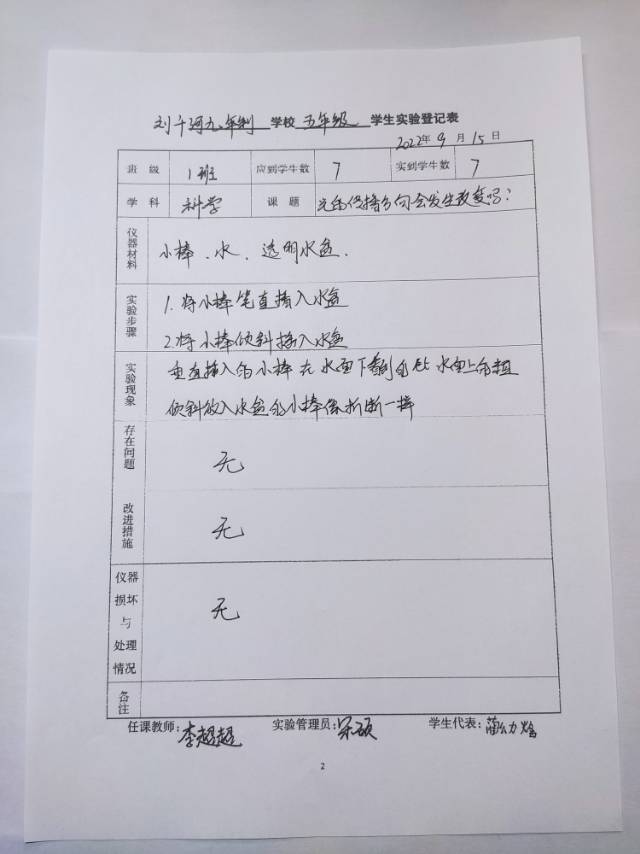 刘千河九年制 学校 五年级 学生实验登记表
2022年 9 月 15 日
班 级 1班 应到学生数 7 实到学生数 7
学 科 科学 课 题 光的传播方向会发生改变吗?
仪器材料 小棒、水、透明水盆.
实验步骤 1.将小棒笔直插入水盆
2.将小棒倾斜插入水盆
实验现象 垂直插入的小棒在水面下看到的比水面上的粗
倾斜放入水盆的小棒像折断一样
存在问题 无
改进措施 无
仪器损坏与处理情况 无
备注
任课教师: 李超超 实验管理员: 宋硕 学生代表:
2